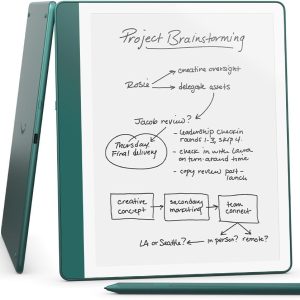 Project Brainstorming
creative oversight
Rosie
delegate assets
Jacob review?
Thursday
Final delivery
- leadership check in
rounds 1-3, skip 4
- check in with Lana
on turn around time
- copy review post-
launch
creative
concept
secondary
marketing
team
connect
LA or Seattle?
in person? remote?